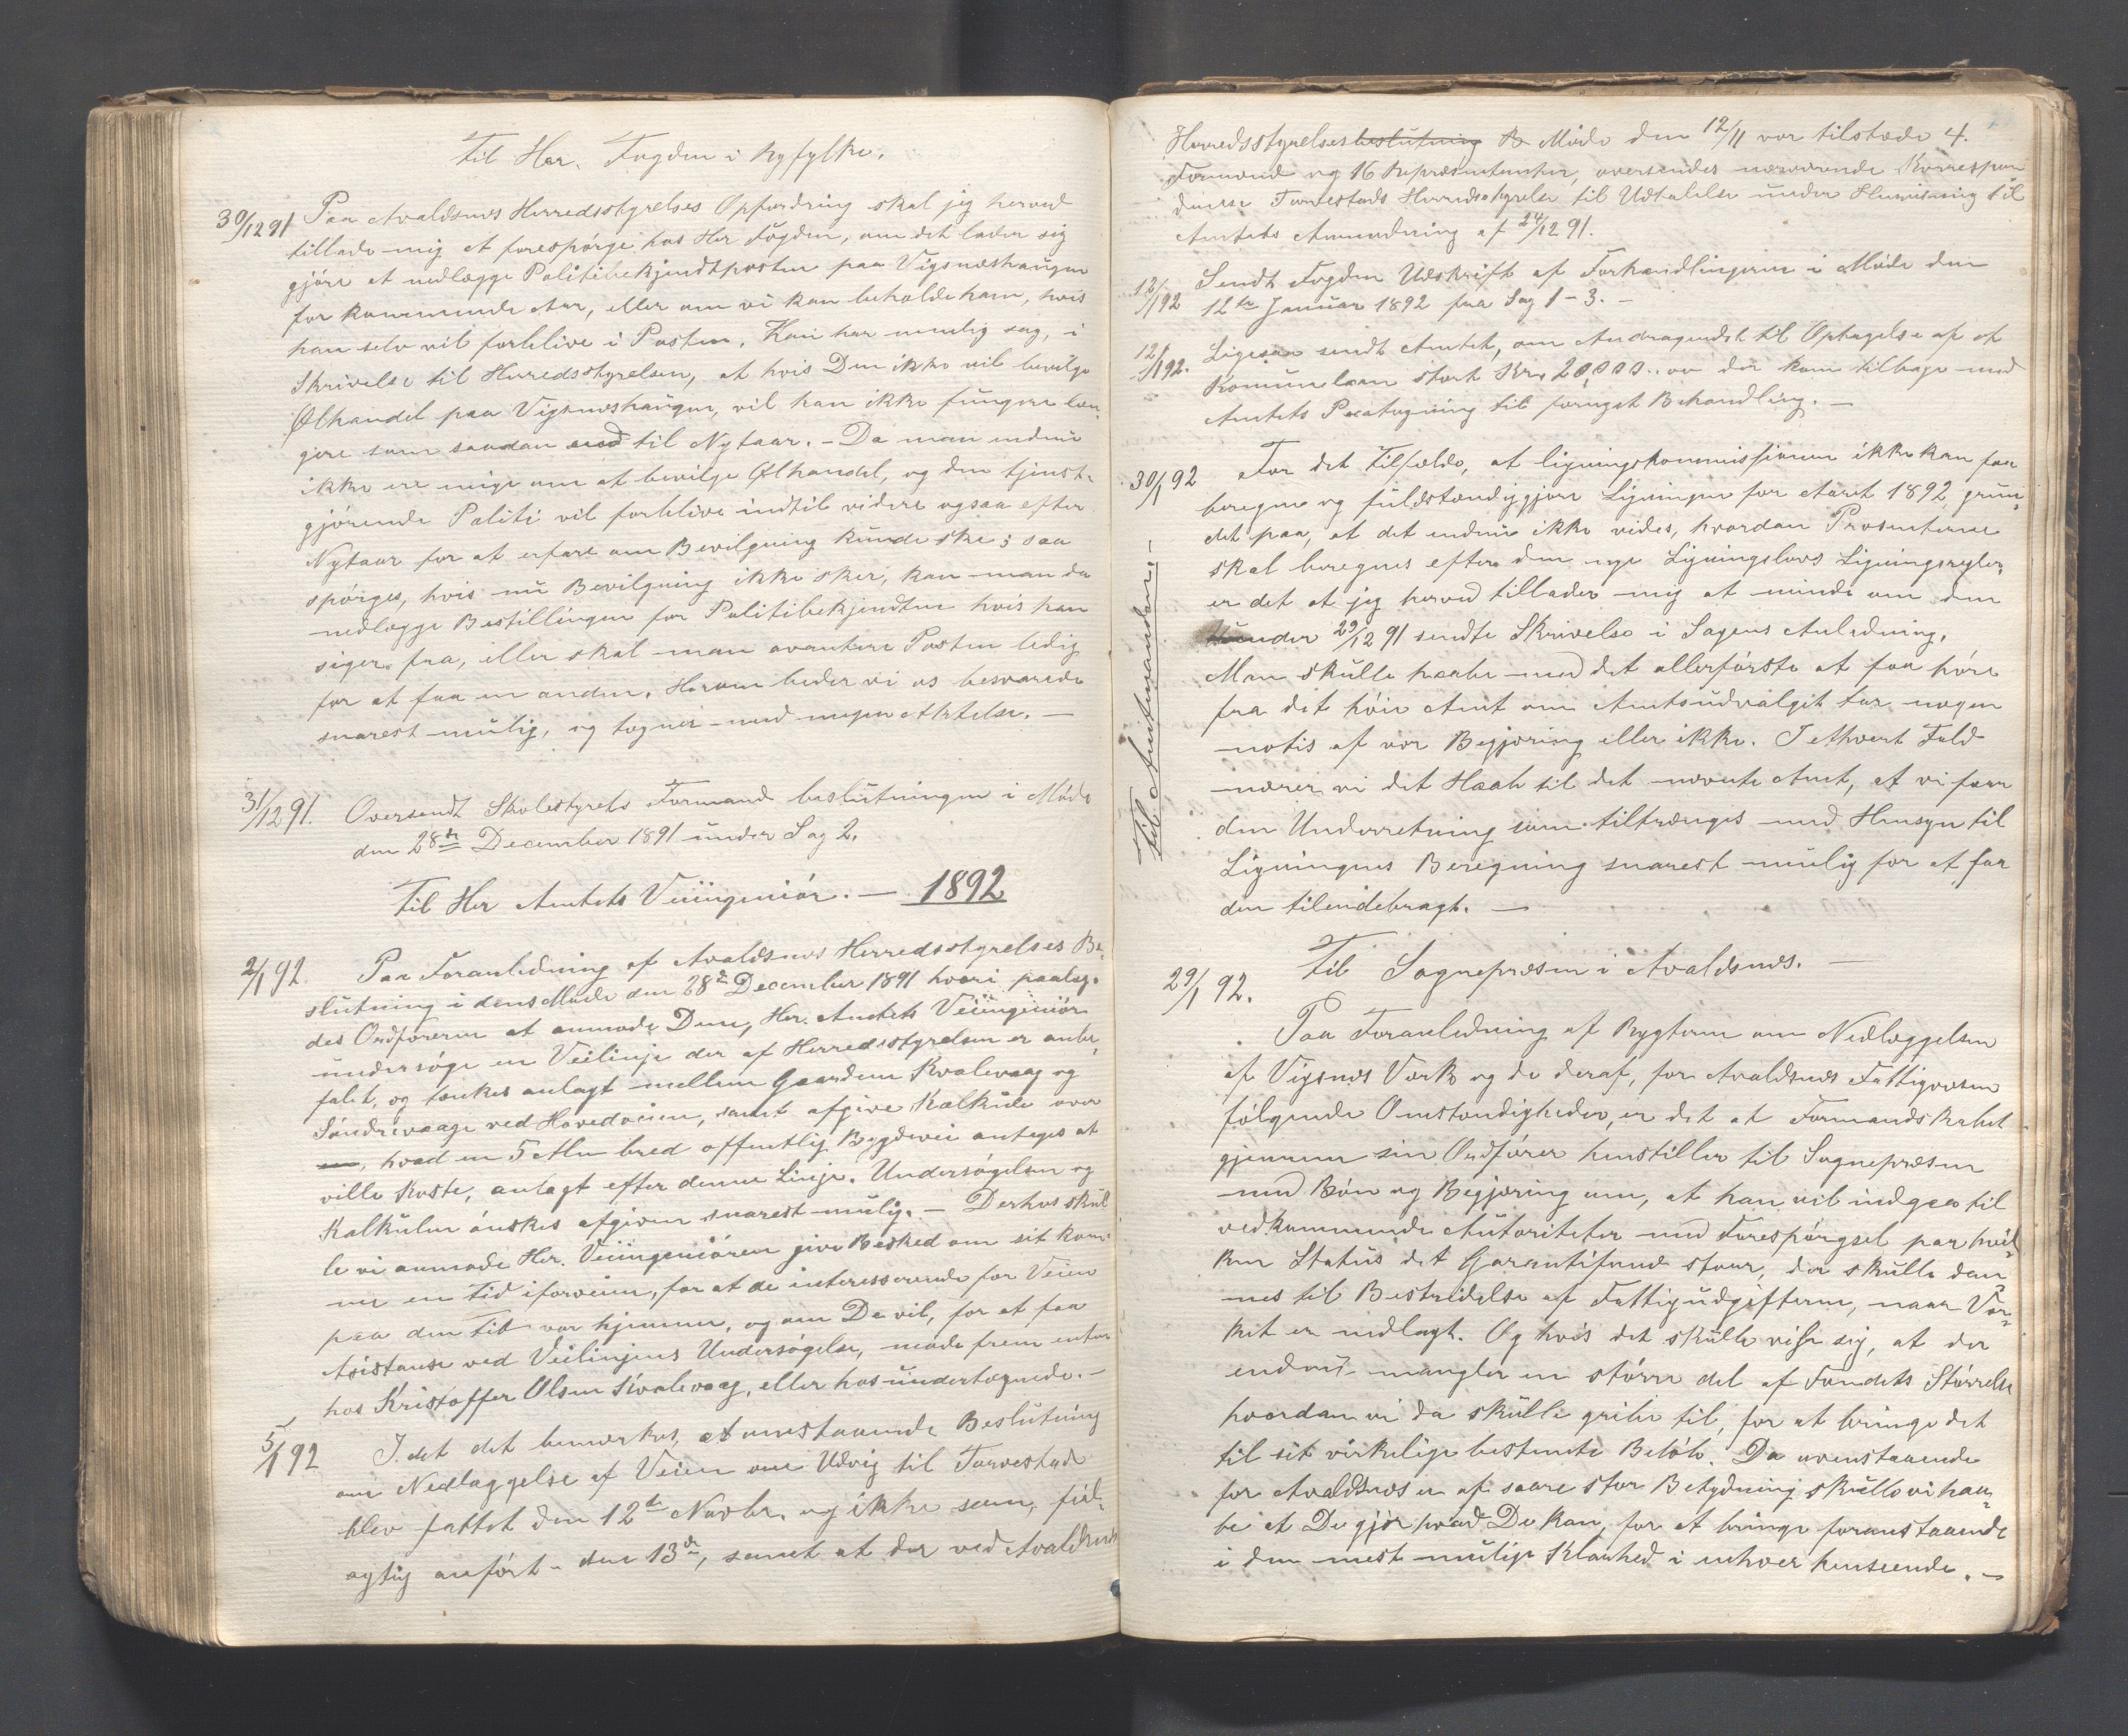 Til Her. Fogden i Ryfylke.
30/12 91 Paa Avaldsnes Herredsstyrelses Opfordring skal jeg herved
tillade mig at forespørge hos Her Fogden, om det lader sig
gjøre at nedlægge Politibekjendtposten paa Vigsneshaugen
for kommende Aar, eller om vi kan beholde ham, hvis
han selv vil forblive i Posten. Han har nemlig sag, i
Skrivelse til Herredsstyrelsen, at hvis Den ikke vil bevilge
Ølhandel paa Vigsneshaugen, vil han ikke fungere læn-
gere som saadan end til Nytaar. – Da man endnu
ikke ere enige om at bevilge Ølhandel, og den tjenst-
gjørende Politi vil forblive indtil videre ogsaa efter
Nytaar for at erfare om Bevilgning kunde ske; saa
spørges, hvis nu Bevilgning ikke sker, kan man da
nedlægge Bestillingen for Politibekjendten hvis han
siger fra, eller skal man avantere Posten ledig
for at faa en anden. Herom beder vi os besvarede
snarest mulig, og tegner med megen Agtelse. —
31/12 91. Oversendt Skolestyrets Formand beslutningen i Møde
den 28de December 1891 under Sag 2.
Til Her Amtets Veiingeniør. — 1892
2/1 92 Paa Foranledning af Avaldsnes Herredsstyrelses Be-
slutning i dens Møde den 28de December 1891 hvori paalag-
des Ordføreren at anmode Dem, Her. Amtets Veiingeniør
undersøge en Veilinje der af Herredsstyrelsen er anbe-
falet, og tænkes anlagt mellem Gaardene Kvalevaag og
Søndrevaage ved Hovedveien, samt afgive Kalkule over
hvad en 5 Alen bred offentlig Bygdevei antages at
ville koste, anlagt efter denne Linje. Undersøgelsen og
Kalkulen ønskes afgiven snarest mulig. — Derhos skul
le vi anmode Her. Veiingeniøren give Besked om sit kom-
me en Tid iforveien, for at de interesserende for Veien
paa den Tid var hjemme, og om De vil, for at faa
Asistanse ved Veilinjens Undersøgelse, møde frem enten
hos Kristoffer Olsen Kvalevaag, eller hos undertegnede. –
5/1 92 I det det bemærkes, at omstaaende Beslutning
om Nedlæggelse af Veien om Udvig til Torvestade
blev fattet den 12te Novbr. og ikke som, feil-
agtig anført – den 13de, samt at der ved Avaldsnes
Herredsstyrelses beslutning B Møde den 12/11 var tilstede 4.
Formænd og 16 Repræsentanter, oversendes nærværende Korrespon
dense Torvestads Herredsstyrelse til Udtalelse under Henvisning til
Amtets Anmerkning af 24/12 91.
12/1 92 Sendt Fogden Udskrift af Forhandlingerne i Møde den
12te Januar 1892 paa Sag 1–3. –
12/1 92. Ligesaa sendt Amtet, om Andragendet til Optagelse af et
Komunelaan stort Kr. 20,000.00 der kom tilbage med
Amtets Paategning til fornyet Behandling. —
30/1 92 For det Tilfælde, at ligningskommissionen ikke kan faa
beregne og fuldstændiggjøre Ligningen for Aaret 1892, grun-
det paa, at det endnu ikke vides, hvordan Prosenterne
skal beregnes efter den nye Ligningslovs Ligningsregler,
er det at jeg herved tillader mig at minde om den
under 29/12 91 sendte Skrivelse i Sagens Anledning.
Man skulle haabe med det allerførste at faa høre
fra det høie Amt om Amtsudvalget tar nogen
notis af vor Begjæring eller ikke. I ethvert Fald
nærer vi det Haab til det nævnte Amt, at vi faar
den Underretning som tiltrænges med Hensyn til
Ligningens Beregning snarest mulig for at faa
den tilendebragt. —
Til Amtmanden. –
Til Sognepræsen i Avaldsnes. —
29/1 92. Paa Foranledning af Rygterne om Nedlæggelsen
af Vigsnes Værk og de deraf, for Avaldsnes Fattigvæsen
følgende Omstændigheder, er det at Formandskabet
gjennem sin Ordfører henstiller til Sognepræsen
med Bøn og Begjæring om, at han vil indgaa til
vedkommende Autoriteter med Forespørgsel paa hvil-
ken Status det Garantifond staar, der skulle dan-
nes til Bestridelse af Fattigudgifterne, naar Vær-
ket er nedlagt. Og hvis det skulle vise sig, at der
endnu mangler en større del af Fondets Størrelse
hvordan vi da skulle gribe til, for at bringe det
til sit virkelige bestemte Beløb. Da ovenstaaende
for Avaldsnes er af saare stor Betydning skulle vi haa-
be at De gjør hvad De kan, for at bringe foranstaaende
i den mest mulige Klarhed i enhver henseende. –